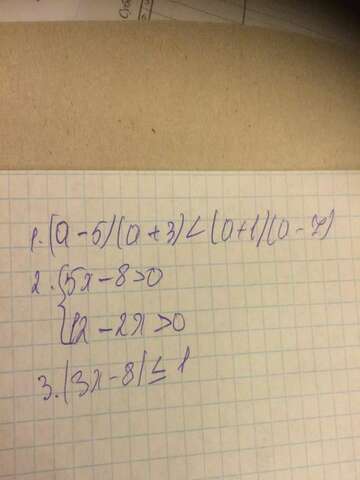 1. (a-5)(a+3)<(a+1)(a-7)
2. {5x-8>0
12-2x>0
3. |3x-8|≤1